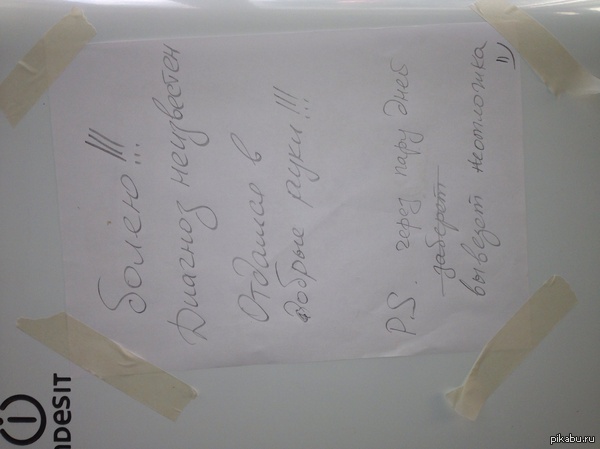 Болею!!!
Диагноз неизвестен
Отдамся в
добрые руки!!!
P.S. через пару дней
заберет
вывезет неотложка
=)
INDESIT
pikabu.ru